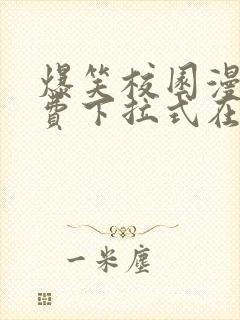 爆笑校园漫
费下拉式在
一米尘